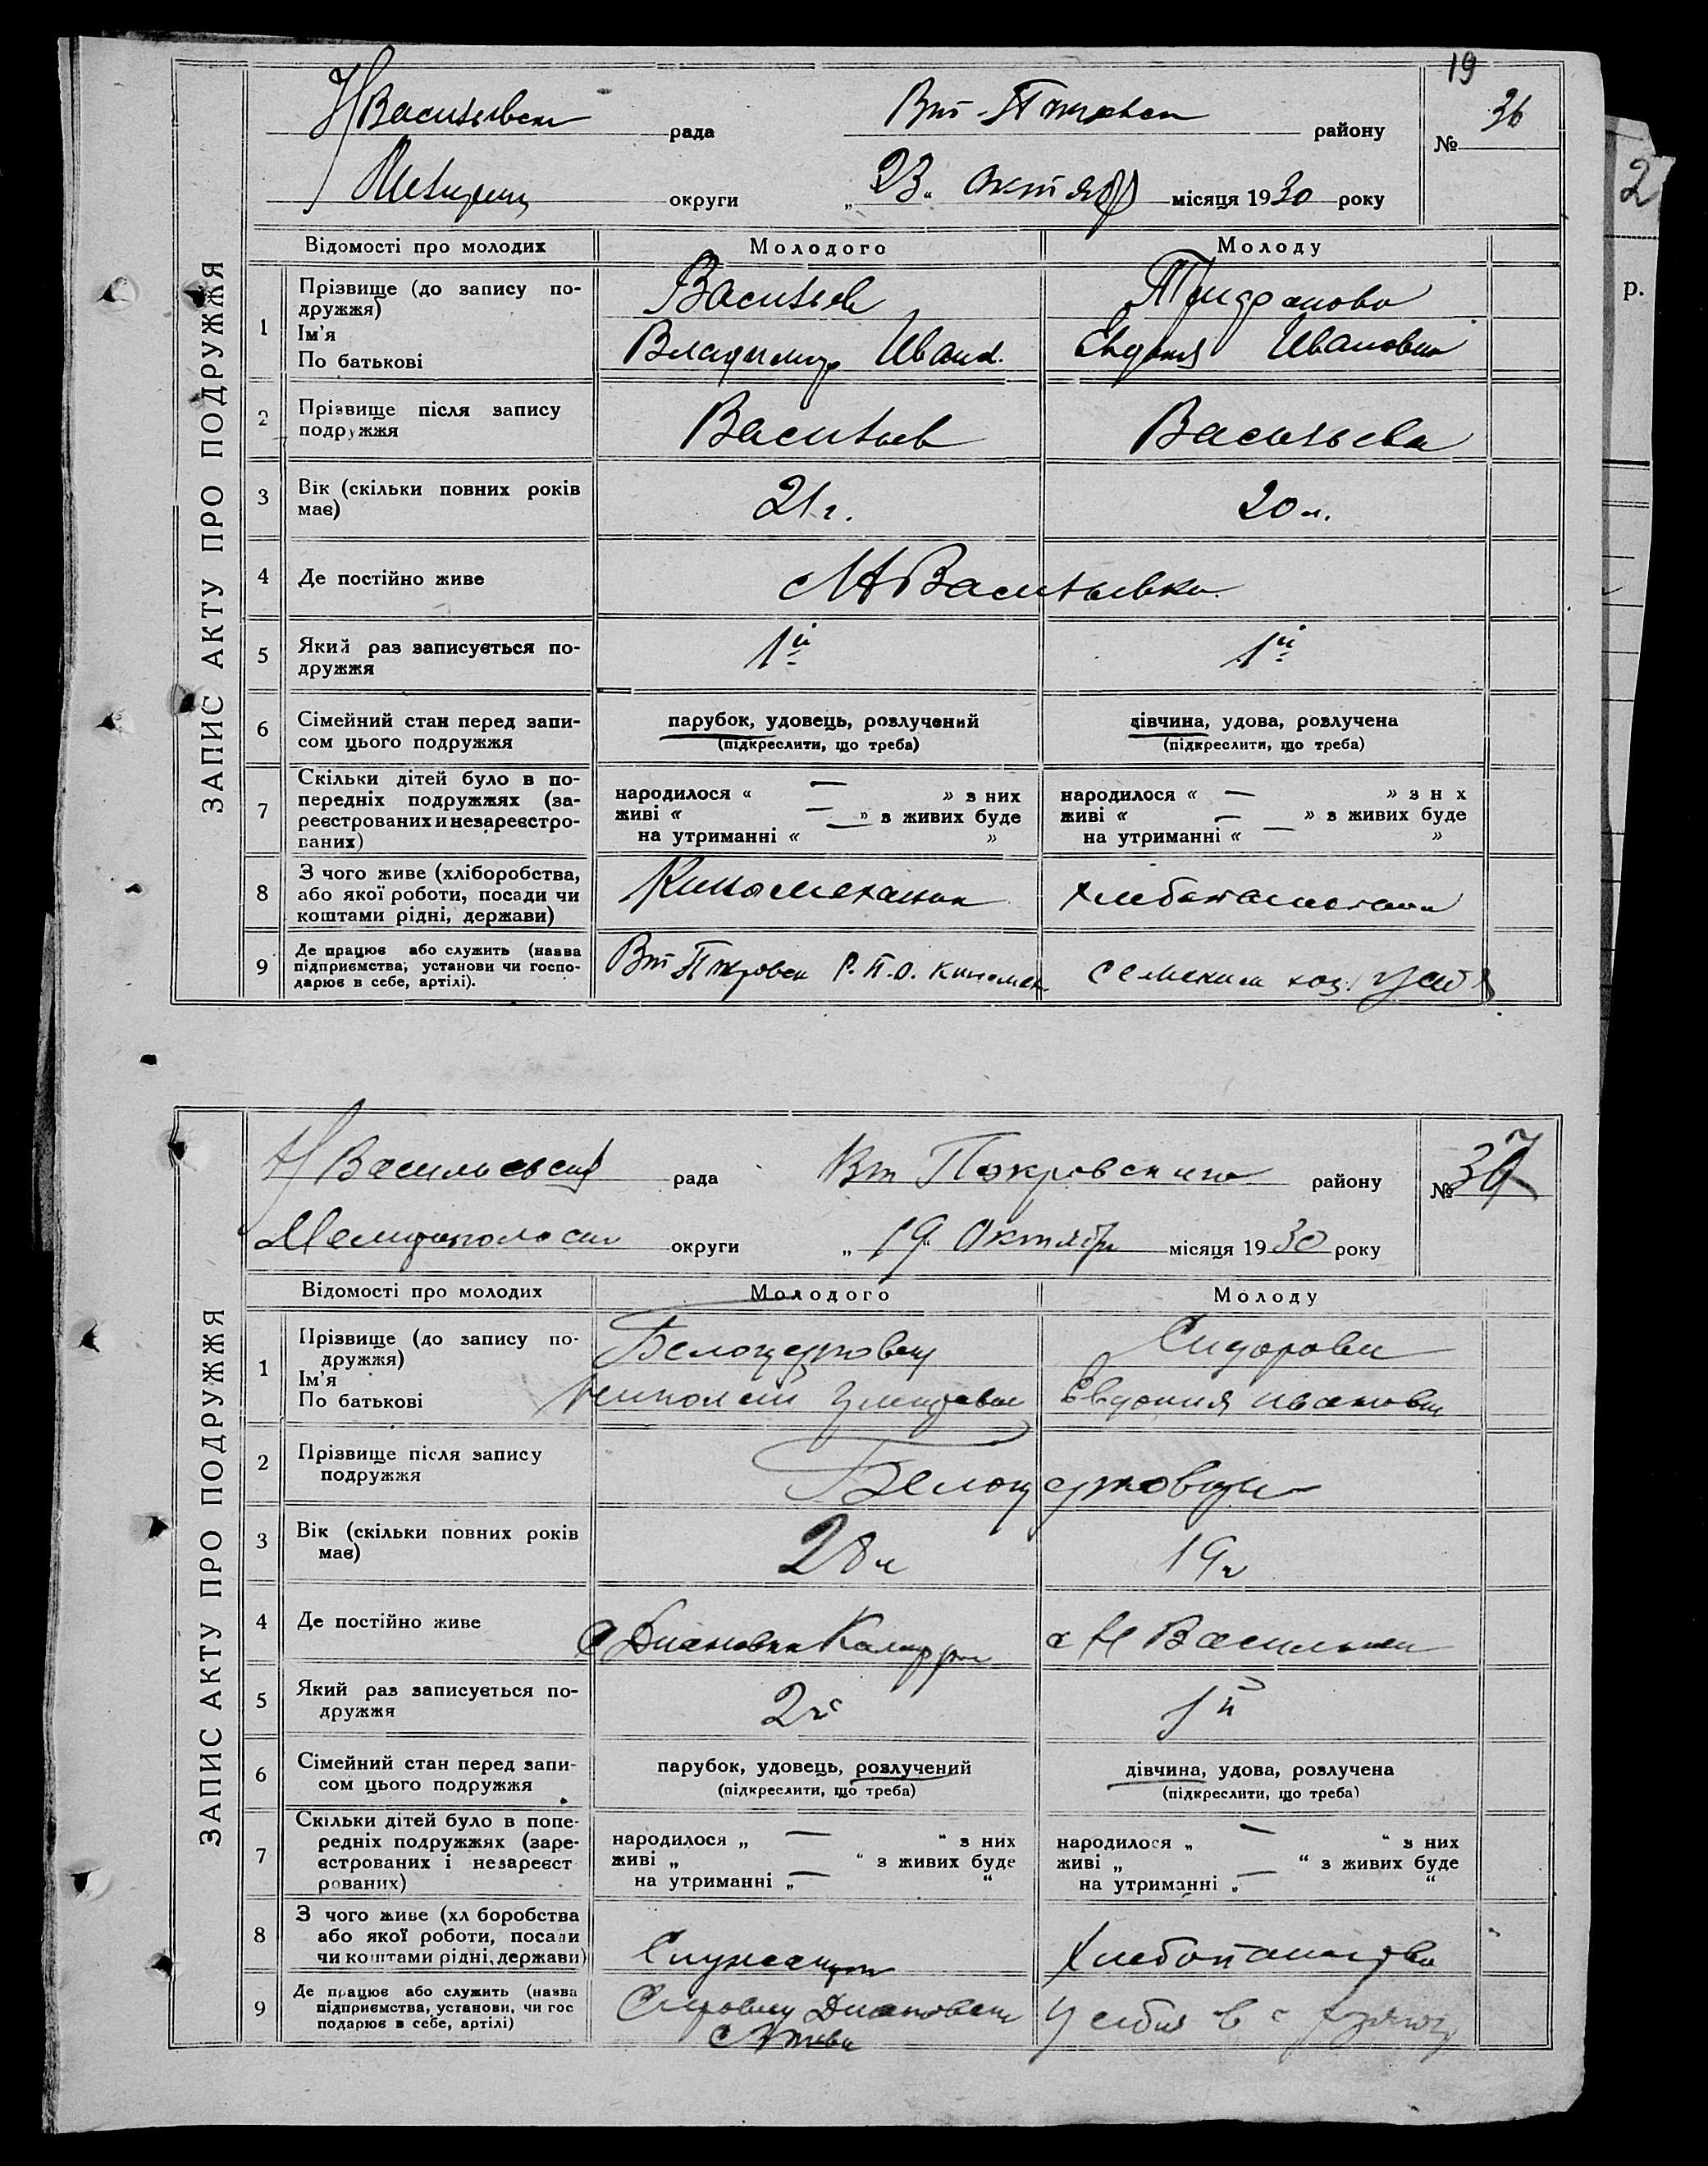 19
НВасильевск рада Вт-Покровск району № 36
Мелитоп округи „23“ октяб місяця 1930 року
ЗАПИС АКТУ ПРО ПОДРУЖЖЯ
Відомості про молодих Молодого Молоду
1 Прізвище (до запису по-
дружжя)
Ім'я
По батькові
Васильев
Владимир Иван.
Евдокия Ивановна
2 Прізвище після запису
подружжя
Васильев Васильева
3 Вік (скільки повних років
має)
21 г. 20 л.
4 Де постійно живе
с НВасильевка
5 Який раз записується по-
дружжя
1й 1й
6 Сімейний стан перед запи-
сом цього подружжя
парубок, удовець, розлучений
(підкреслити, що треба)
дівчина, удова, розлучена
(підкреслити, що треба)
7 Скільки дітей було в по-
передніх подружжях (за-
реєстрованих и незареєстро-
ваних)
народилося « — » з них
живі « — » з живих буде
на утриманні « — »
народилося « — » з н х
живі « — » з живих буде
на утриманні « — »
8 З чого живе (хліборобства,
або якої роботи, посади чи
коштами рідні, держави)
Киномеханик хлебопашество
9 Де працює або служить (назва
підприємства, установи чи госпо-
дарює в себе, артілі).
Вт Покровск Р.П.О. киномех.
2
р.
Н Васильевск рада Вт Покровского району № 37
Мелитопольск округи „19“ Октября місяця 1930 року
ЗАПИС АКТУ ПРО ПОДРУЖЖЯ
Відомості про молодих Молодого Молоду
1 Прізвище (до запису по-
дружжя)
Ім'я
По батькові
Белоцерковец
Сидорова
Евдокия Ивановна
2 Прізвище після запису
подружжя
Белоцерковцы
3 Вік (скільки повних років
має)
28 л 19 л
4 Де постійно живе
с Диановка с Н Васильевка
5 Який раз записується по-
дружжя
2й 1й
6 Сімейний стан перед запи-
сом цього подружжя
парубок, удовець, розлучений
(підкреслити, що треба)
дівчина, удова, розлучена
(підкреслити, що треба)
7 Скільки дітей було в попе-
редніх подружжях (заре-
єстрованих і незареєст
рованих)
народилося „ — “ з них
живі „ “ з живих буде
на утриманні „ — “
народилося „ — “ з них
живі „ “ з живих буде
на утриманні „ — “
8 З чого живе (хл боробства
або якої роботи, посади
чи коштами рідні, держави)
Служащий Хлебопашество
9 Де працює або служить (назва
підприємства, установи, чи гос
подарює в себе, артілі)